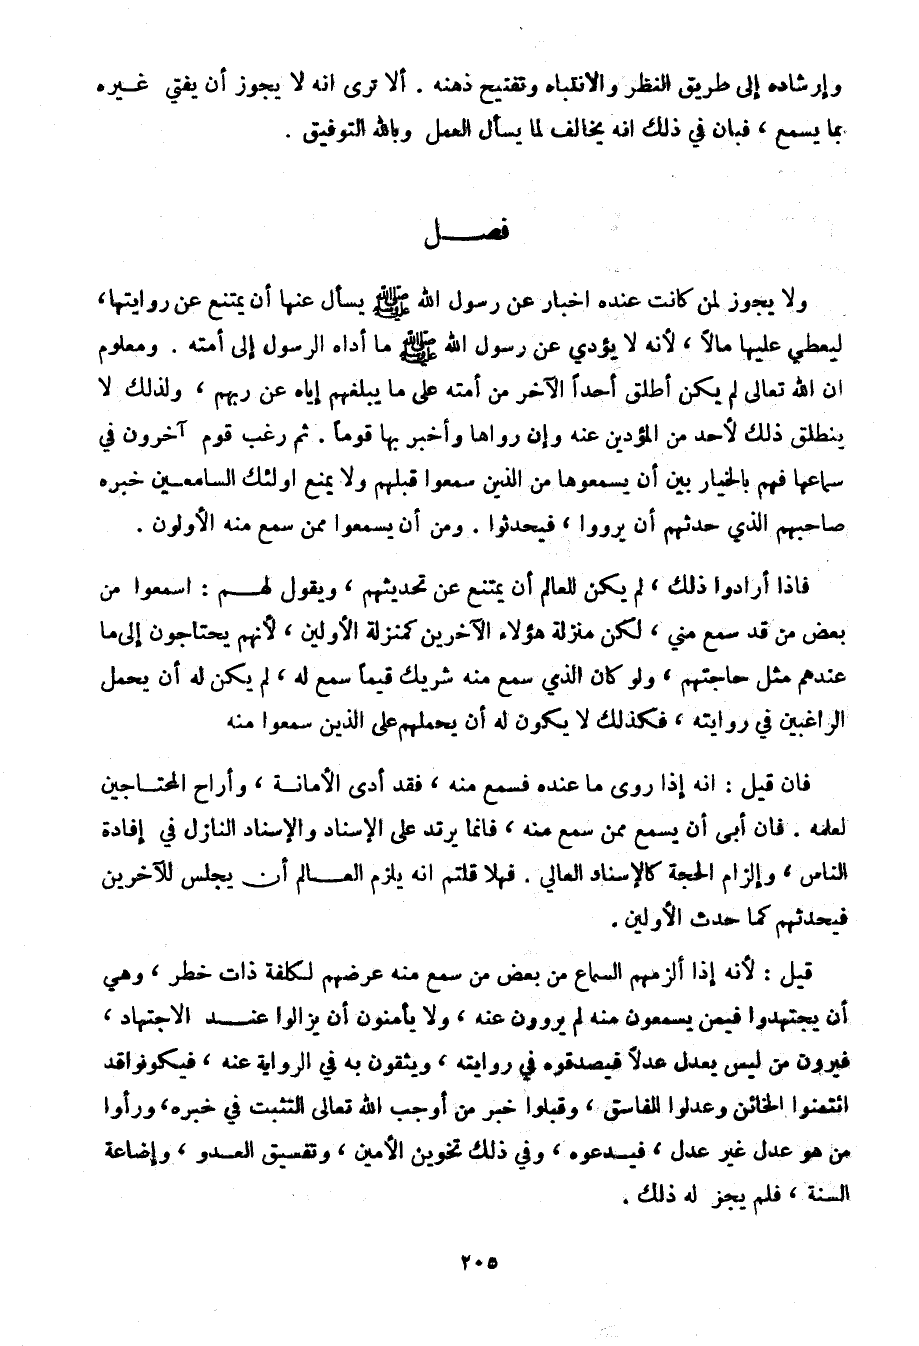 وإرشاده إلى طريق النظر والانتباه وتفتيح ذهنه . ألا ترى انه لا يجوز أن يفتي غيره
بما يسمع ، فبان في ذلك انه يخالف لما يسأل العمل وبالله التوفيق .
فصل
ولا يجوز لمن كانت عنده اخبار عن رسول الله ﷺ يسأل عنها أن يمتنع عن روايتها،
ليعطي عليها مالاً ، لأنه لا يؤدي عن رسول الله ﷺ ما أداه الرسول إلى أمته . ومعلوم
ان الله تعالى لم يكن أطلق أحداً الآخر من أمته على ما يبلغهم إياه عن ربهم ، ولذلك لا
ينطلق ذلك لأحد من المؤدين عنه وإن رواها وأخبر بها قوماً . ثم رغب قوم آخرون في
سماعها فهم بالخيار بين أن يسمعوها من الذين سمعوا قبلهم ولا يمنع اولئك السامعين خبره
صاحبهم الذي حدثهم أن يرووا ، فيحدثوا . ومن أن يسمعوا ممن سمع منه الأولون .
فاذا أرادوا ذلك ، لم يكن للعالم أن يمتنع عن تحديثهم ، ويقول لهم : اسمعوا من
بعض من قد سمع مني ، لكن منزلة هؤلاء الآخرين كمنزلة الأولين ، لأنهم يحتاجون إلى ما
عندهم مثل حاجتهم ، ولو كان الذي سمع منه شريك قيماً سمع له ، لم يكن له أن يحمل
الراغبين في روايته ، فكذلك لا يكون له أن يحملهم على الذين سمعوا منه
فان قيل : انه إذا روى ما عنده فسمع منه ، فقد أدى الأمانة ، وأراح المحتاجين
لعلمه . فان أبى أن يسمع ممن سمع منه ، فانما يرتد على الإسناد والإسناد النازل في إفادة
الناس ، وإلزام الحجة كالإسناد العالي . فهلا قلتم انه يلزم العالم أن يجلس للآخرين
فيحدثهم كما حدث الأولين .
قيل : لأنه إذا ألزمهم السماع من بعض من سمع منه عرضهم لكلفة ذات خطر ، وهي
أن يجتهدوا فيمن يسمعون منه لم يروون عنه ، ولا يأمنون أن يزالوا عند الاجتهاد ،
فيرون من ليس بعدل عدلاً فيصدقوه في روايته ، ويثقون به في الرواية عنه ، فيكونوا قد
ائتمنوا الخائن وعدلوا الفاسق ، وقبلوا خبر من أوجب الله تعالى التثبت في خبره، ورأوا
من هو عدل غير عدل ، فيدعوه ، وفي ذلك تخوين الأمين ، وتفسيق العدو ، وإضاعة
السنة ، فلم يجز له ذلك .
٢٠٥